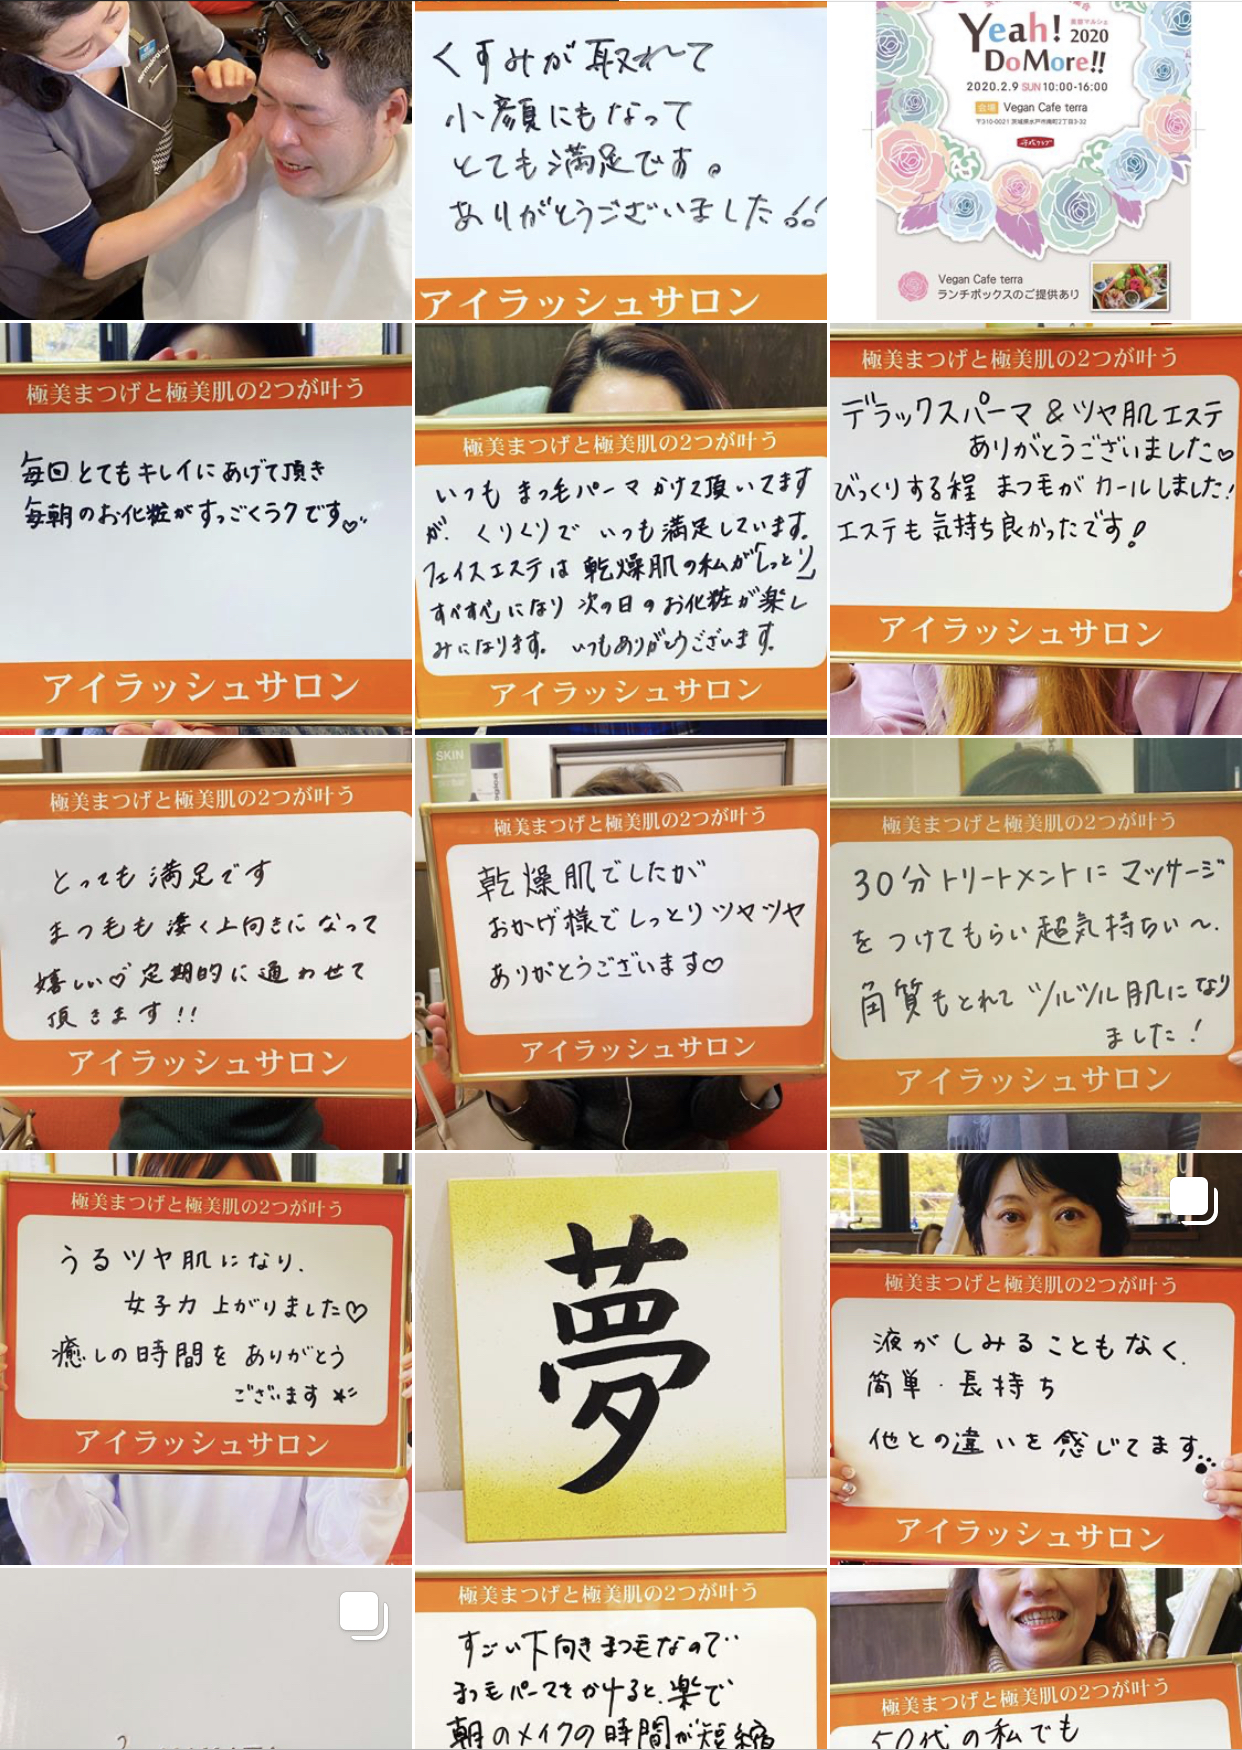 くすみが取れて
小顔にもなって
とても満足です。
ありがとうございました!!
アイラッシュサロン
Yeah! 2020
Do More!!
2020.2.9 SUN 10:00-16:00
会場 Vegan Cafe terra
〒310-0021 茨城県水戸市南町2丁目3-32
Vegan Cafe terra
ランチボックスのご提供あり
極美まつげと極美肌の2つが叶う
毎回とてもキレイにあげて頂き
毎朝のお化粧がすっごくラクです♡
アイラッシュサロン
極美まつげと極美肌の2つが叶う
いつも まつ毛パーマ かけて頂いてます
が、くりくりで いつも満足しています。
フェイスエステは 乾燥肌の私が「しっとり
すべすべ」になり 次の日のお化粧が楽し
みになります。 いつもありがとうございます。
アイラッシュサロン
極美まつげと極美肌の2つが叶う
デラックスパーマ & ツヤ肌エステ
ありがとうございました♡
びっくりする程 まつ毛が カールしました!
エステも気持ち良かったです!
アイラッシュサロン
極美まつげと極美肌の2つが叶う
とっても満足です
まつ毛も凄く上向きになって
嬉しい♡ 定期的に通わせて
頂きます!!
アイラッシュサロン
SKIN
極美まつげと極美肌の2つが叶う
乾燥肌でしたが
おかげ様でしっとりツヤツヤ
ありがとうございます♡
アイラッシュサロン
極美まつげと極美肌の2つが叶う
30分トリートメントにマッサージ
をつけてもらい超気持ちい〜.
角質もとれてツルツル肌になり
ました!
アイラッシュサロン
極美まつげと極美肌の2つが叶う
うるツヤ肌になり、
女子力 上がりました♡
癒しの時間を ありがとう
ございます
アイラッシュサロン
夢
極美まつげと極美肌の2つが叶う
液がしみることもなく、
簡単・長持ち
他との違いを感じてます
アイラッシュサロン
極美まつげと極美肌の2つが叶う
すごい下向きまつ毛なので
まつ毛パーマをかけると、楽で
朝のメイクの時間が短縮
極美まつげと極美肌の2つが叶う
50代の私でも